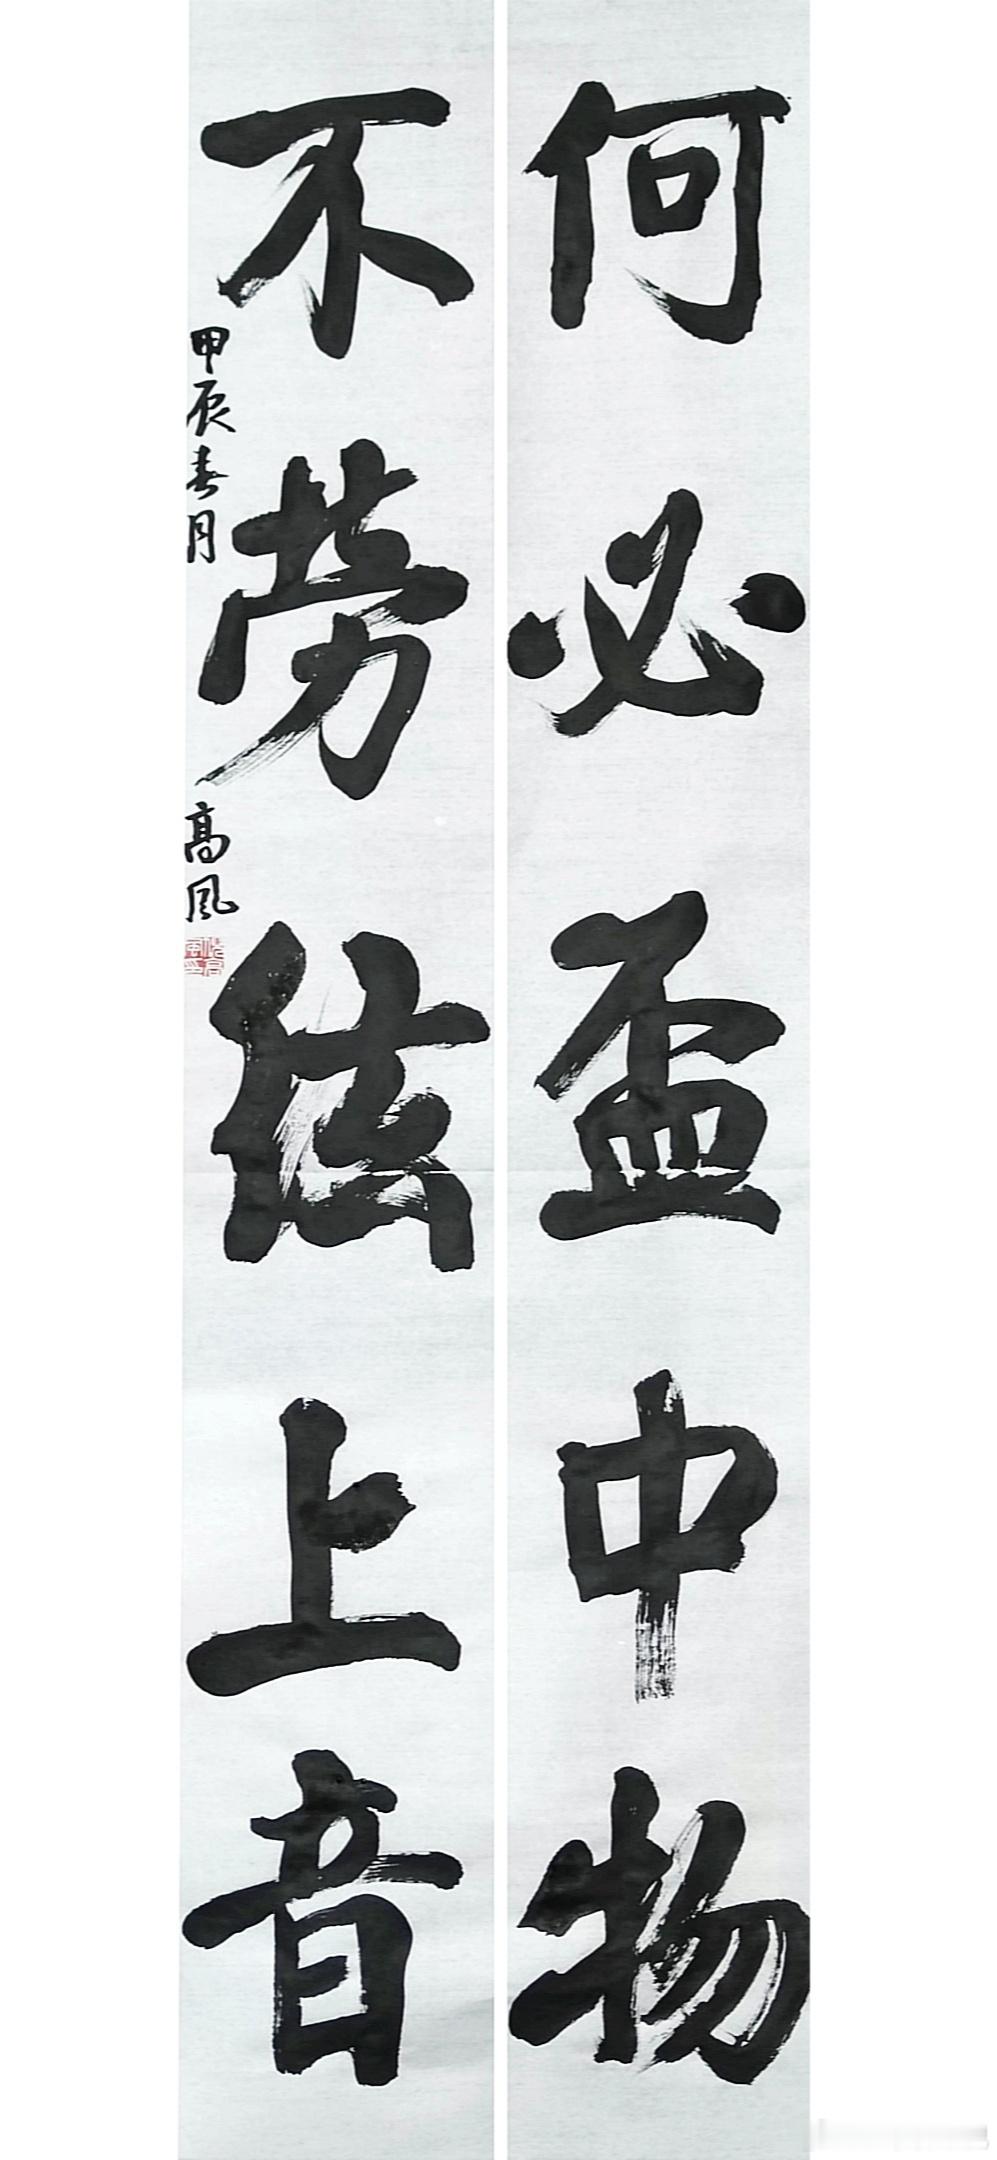 何必盃中物
不劳弦上音
甲辰春月
高风